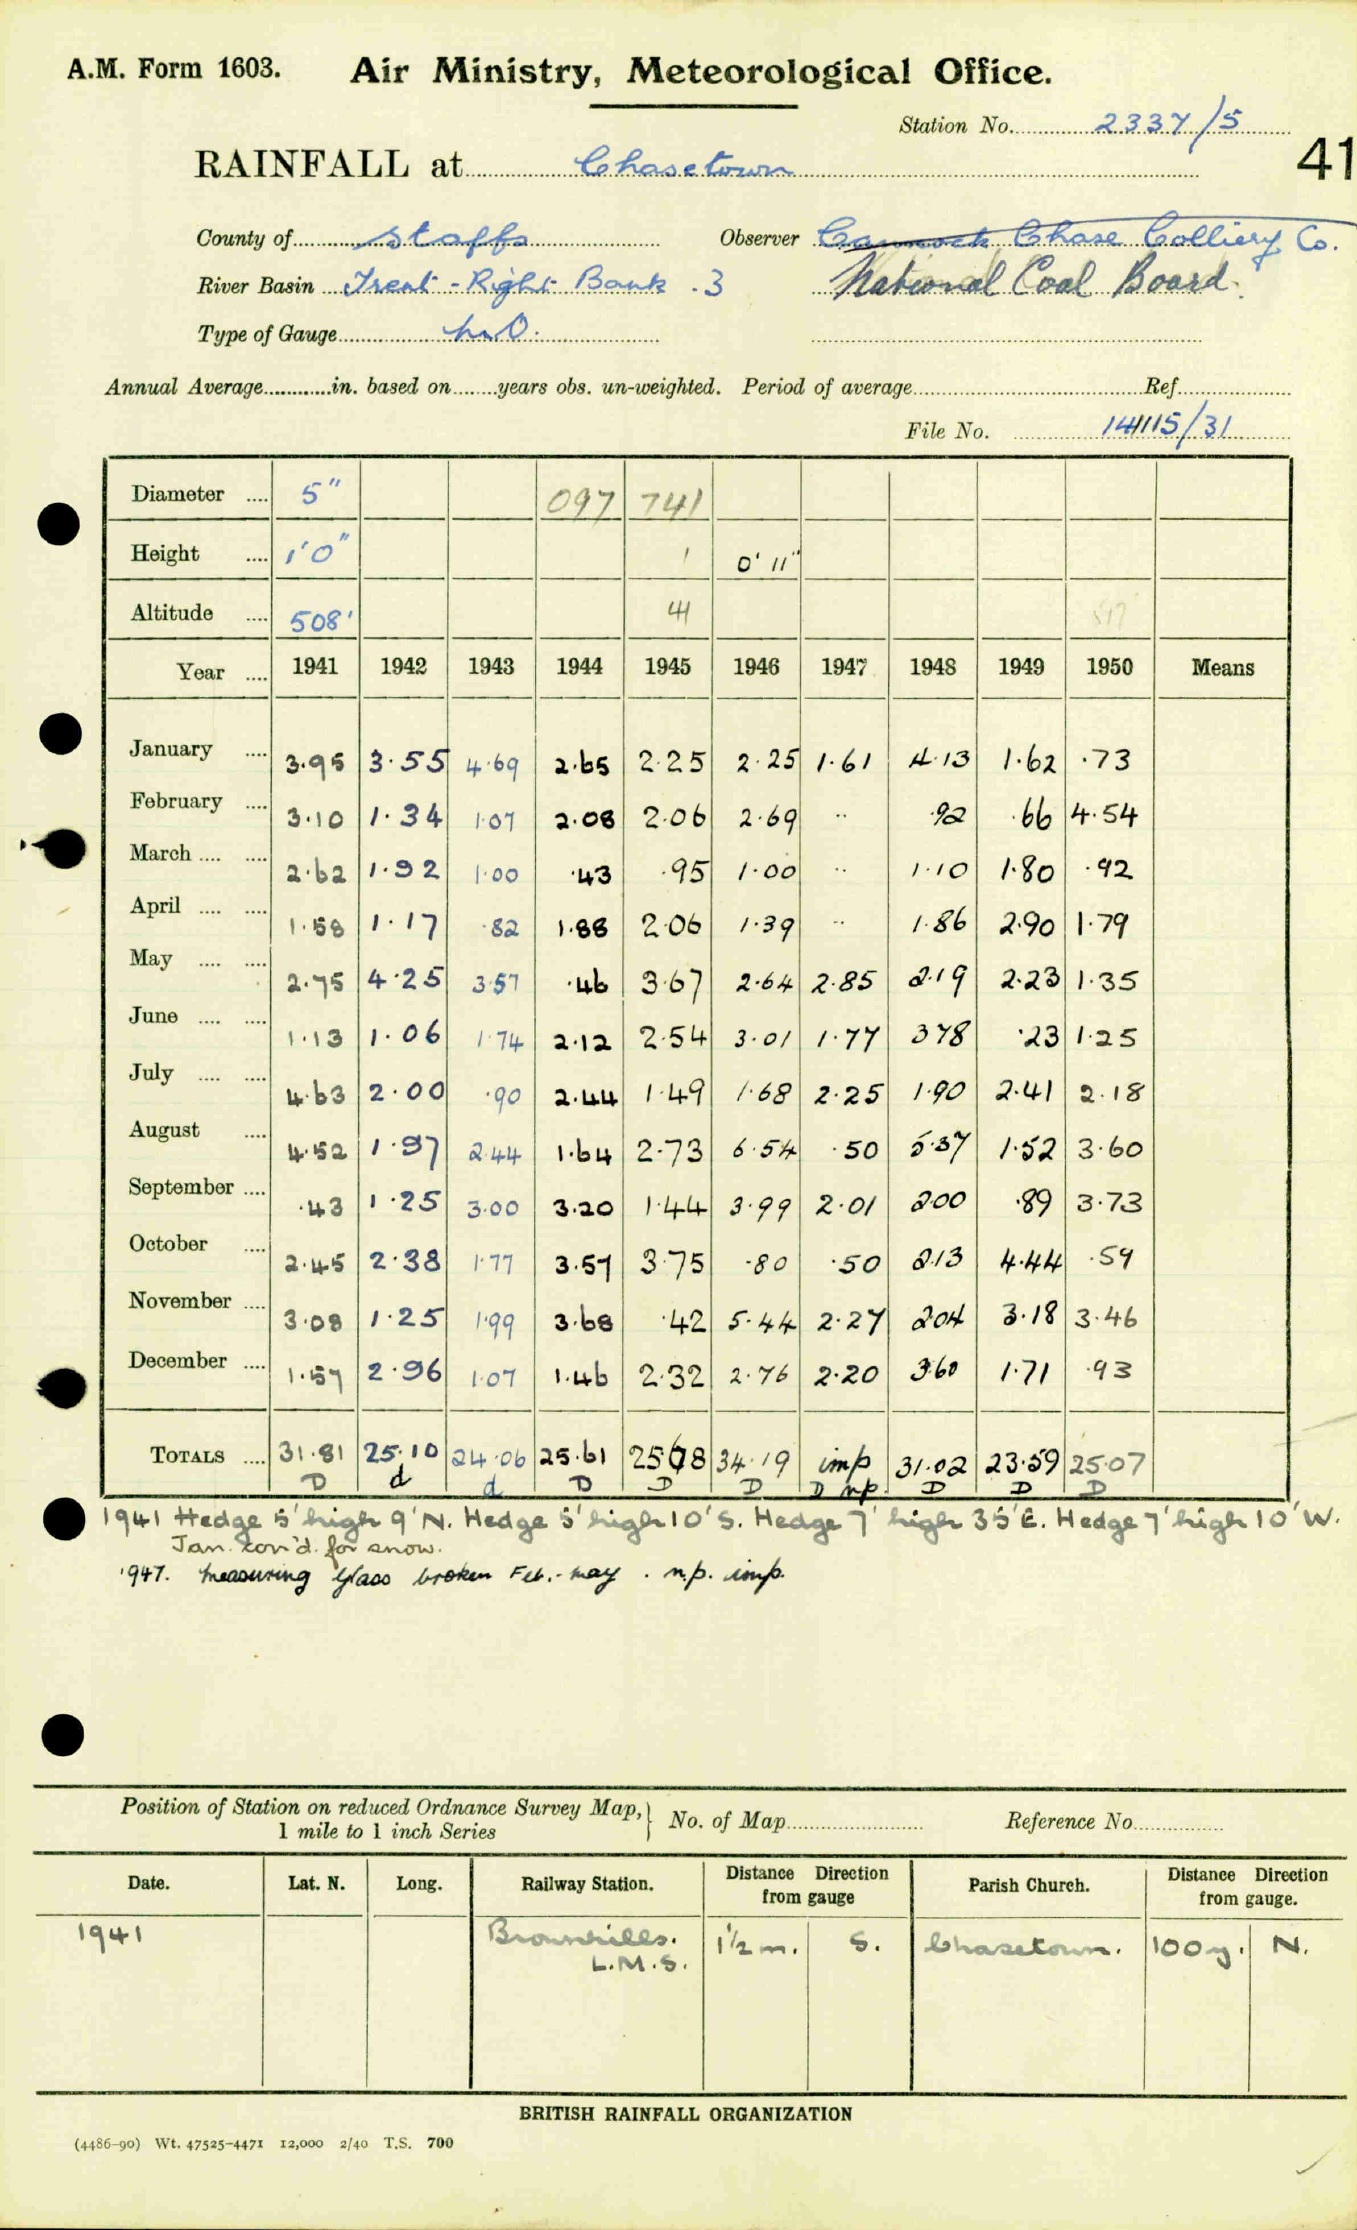 A.M. Form 1603. Air Ministry, Meteorological Office.
Station No. 2337/5
RAINFALL at Chasetown
41
County of Staffs Observer Cannock Chase Colliery Co.
River Basin Trent - Right Bank .3 National Coal Board.
Type of Gauge M.O.
Annual Average in. based on years obs. un-weighted. Period of average Ref.
File No. 14115/31
Diameter 5" 097 741
Height 1'0" 1 0' 11"
Altitude 508' 41 517
Year 1941 1942 1943 1944 1945 1946 1947 1948 1949 1950 Means
January 3.95 3.55 4.69 2.65 2.25 2.25 1.61 4.13 1.62 .73
February 3.10 1.34 1.07 2.08 2.06 2.69 .. .92 .66 4.54
March 2.62 1.92 1.00 .43 .95 1.00 .. 1.10 1.80 .92
April 1.58 1.17 .82 1.88 2.06 1.39 .. 1.86 2.90 1.79
May 2.75 4.25 3.57 .46 3.67 2.64 2.85 2.19 2.23 1.35
June 1.13 1.06 1.74 2.12 2.54 3.01 1.77 3.78 .23 1.25
July 4.63 2.00 .90 2.44 1.49 1.68 2.25 1.90 2.41 2.18
August 4.52 1.97 2.44 1.64 2.73 6.54 .50 5.37 1.52 3.60
September .43 1.25 3.00 3.20 1.44 3.99 2.01 2.00 .89 3.73
October 2.45 2.38 1.77 3.57 3.75 .80 .50 2.13 4.44 .59
November 3.08 1.25 1.99 3.68 .42 5.44 2.27 2.04 3.18 3.46
December 1.57 2.96 1.07 1.46 2.32 2.76 2.20 3.60 1.71 .93
TOTALS 31.81 25.10 24.06 25.61 25.68 34.19 imp 31.02 23.59 25.07
D d d D D D D np. D D D
1941 Hedge 5' high 9' N. Hedge 5' high 10' S. Hedge 7' high 35' E. Hedge 7' high 10' W.
Jan. cor'd. for snow.
1947. measuring glass broken Feb. - may . n.p. imp.
Position of Station on reduced Ordnance Survey Map, } No. of Map Reference No.
1 mile to 1 inch Series
Date. Lat. N. Long. Railway Station. Distance Direction from gauge Parish Church. Distance Direction from gauge.
1941 Brownhills. 1½ m. S. Chasetown. 100 y. N.
L.M.S.
BRITISH RAINFALL ORGANIZATION
(4486-90) Wt. 47525-4471 12,000 2/40 T.S. 700